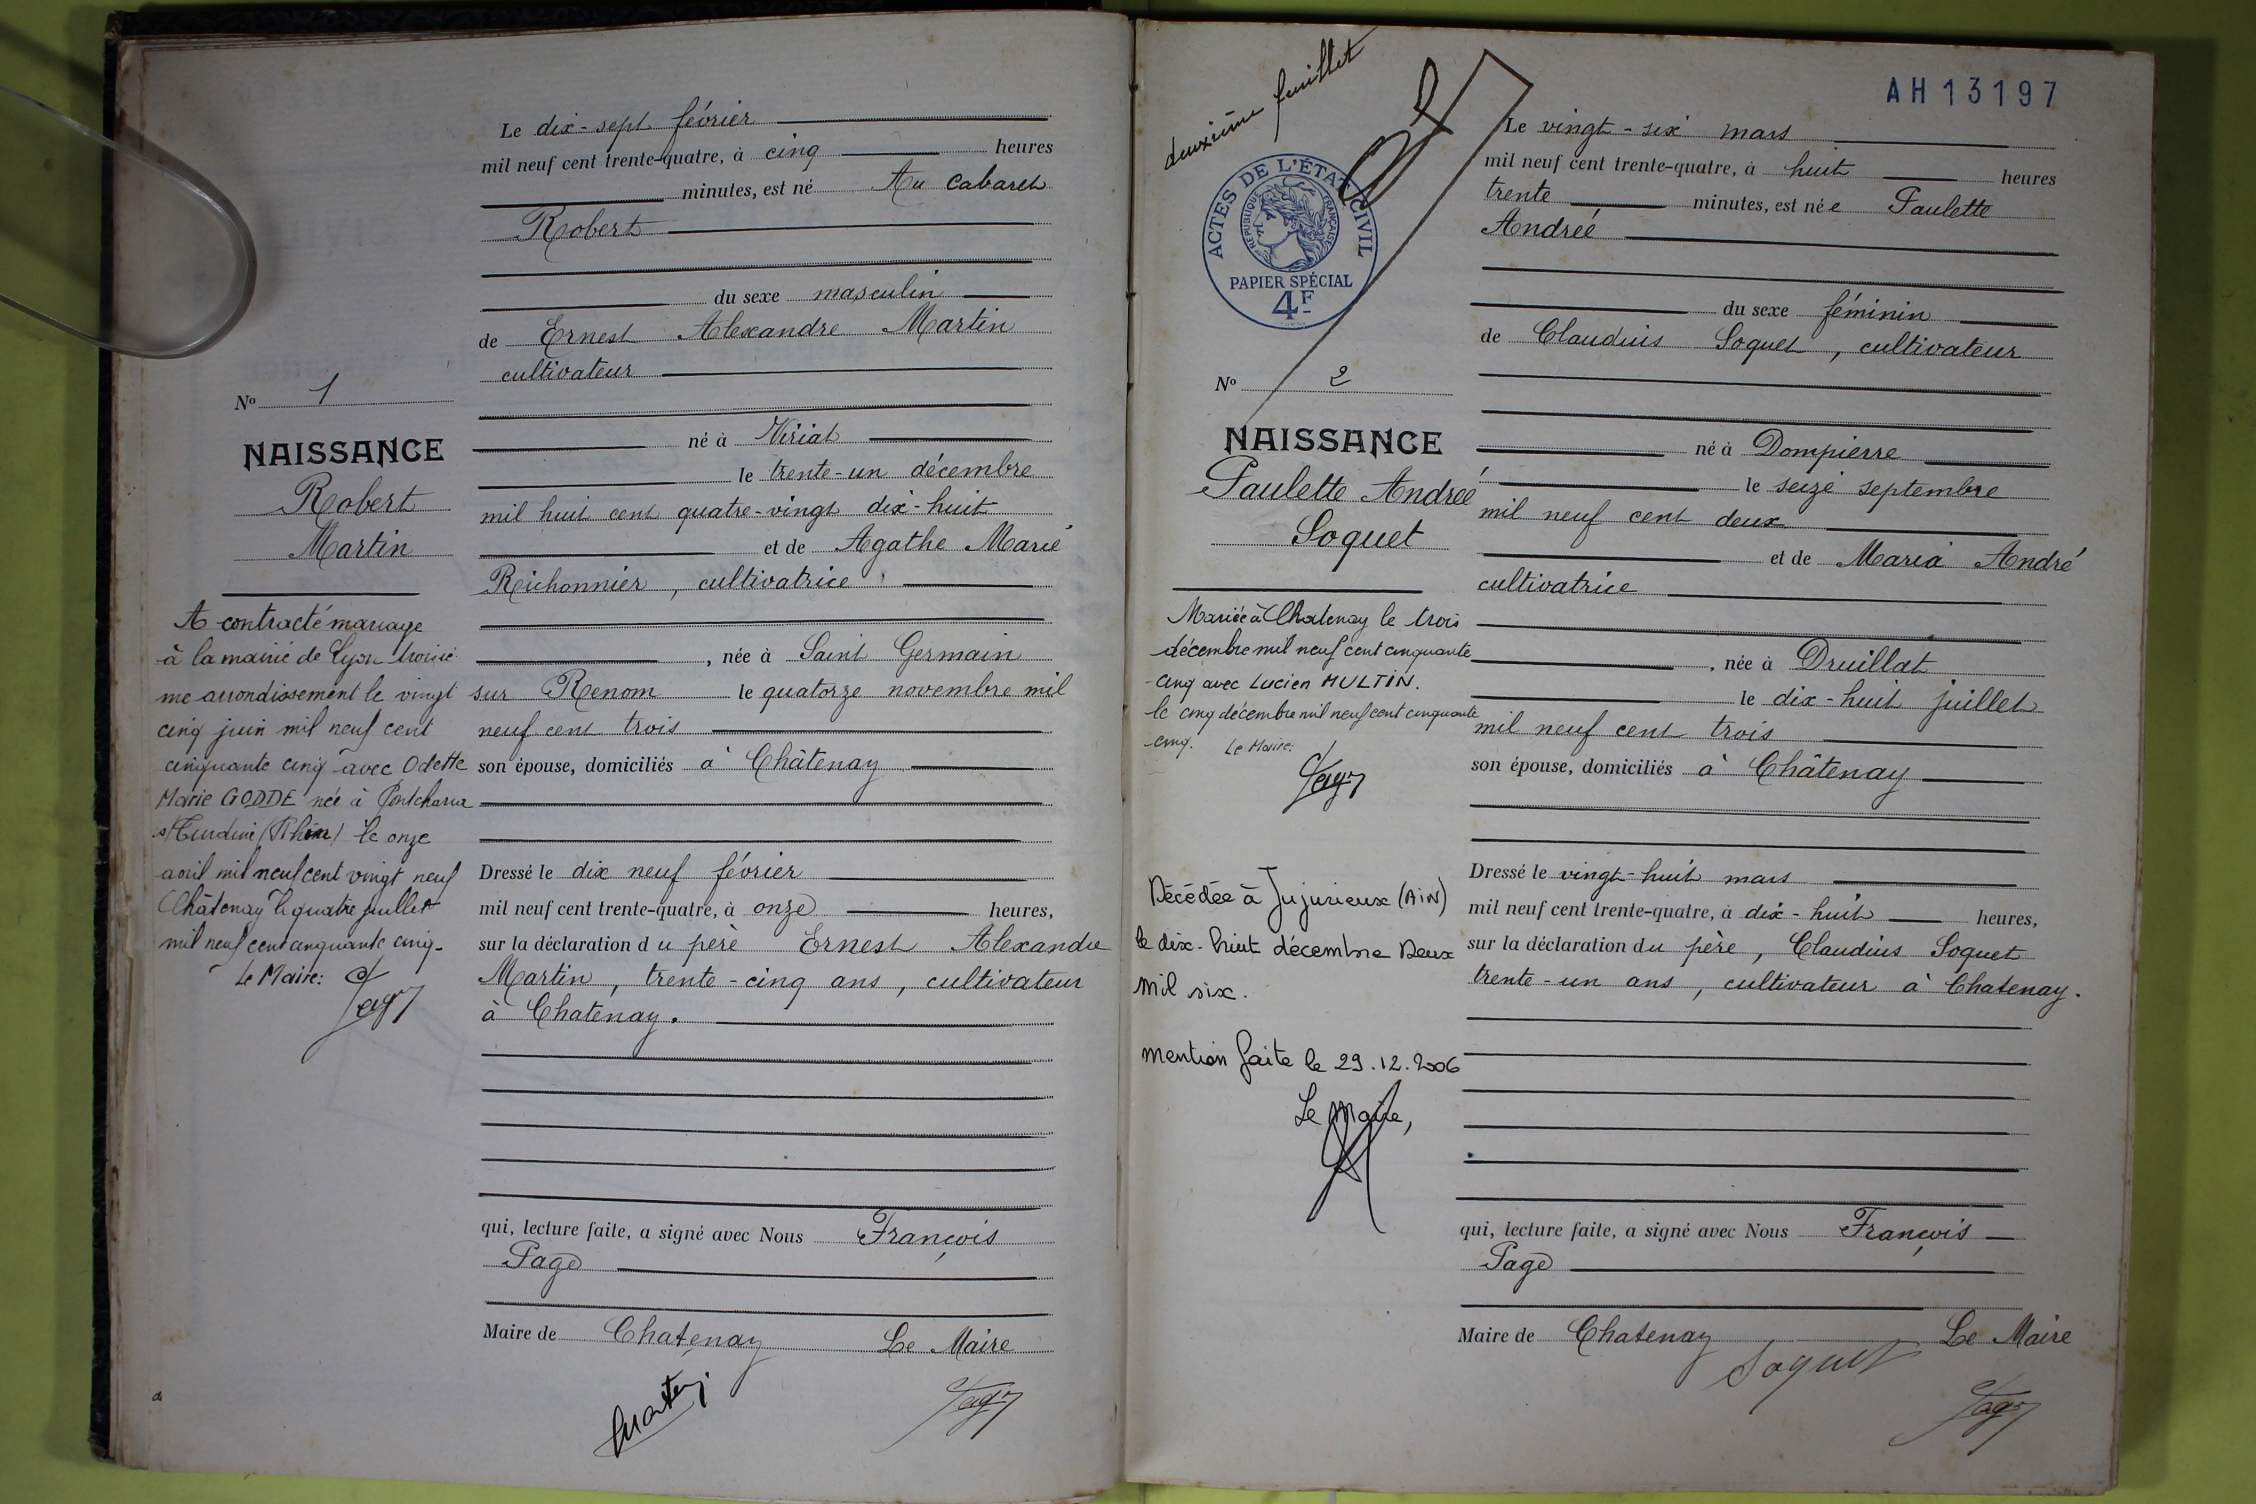 Le dix-sept février
mil neuf cent trente-quatre, à cinq heures
minutes, est né Au Cabaret
Robert
du sexe masculin
de Ernest Alexandre Martin
cultivateur
né à Viriat
le trente-un décembre
mil huit cent quatre-vingt dix-huit
et de Agathe Marie
Richonnier, cultivatrice
, née à Saint Germain
sur Renom le quatorze novembre mil
neuf cent trois
son épouse, domiciliés à Châtenay
Dressé le dix neuf février
mil neuf cent trente-quatre, à onze heures,
sur la déclaration du père Ernest Alexandre
Martin, trente-cinq ans, cultivateur
à Chatenay.
qui, lecture faite, a signé avec Nous François
Page
Maire de Chatenay Le Maire
Nº 1
NAISSANCE
Robert
Martin
A contracté mariage
à la mairie de Lyon troisiè
me arrondissement le vingt
cinq juin mil neuf cent
cinquante cinq avec Odette
Marie GODDE née à
le onze
avril mil neuf cent vingt neuf
Châtenay le quatre juillet
mil neuf cent cinquante cinq.
Le Maire:
deuxième feuillet
AH13197
ACTES DE L'ÉTAT CIVIL
RÉPUBLIQUE FRANÇAISE
PAPIER SPÉCIAL
4F
Nº 2
NAISSANCE
Paulette Andreé
Soquet
Mariée à Chatenay le trois
décembre mil neuf cent cinquante
-cinq avec Lucien MULTIN.
le cinq décembre mil neuf cent cinquante
-cinq. Le Maire:
Décédée à Jujurieux (AiN)
le dix-huit décembre Deux
mil six.
mention faite le 29.12.2006
Le Maire,
Le vingt-six mars
mil neuf cent trente-quatre, à huit heures
trente minutes, est née Paulette
Andreé
du sexe féminin
de Claudius Soquet, cultivateur
né à Dompierre
le seize septembre
mil neuf cent deux
et de Maria André
cultivatrice
, née à Druillat
le dix-huit juillet
mil neuf cent trois
son épouse, domiciliés à Châtenay
Dressé le vingt-huit mars
mil neuf cent trente-quatre, à dix-huit heures,
sur la déclaration du père, Claudius Soquet
trente-un ans, cultivateur à Chatenay.
qui, lecture faite, a signé avec Nous François
Page
Maire de Chatenay Le Maire
Soquet